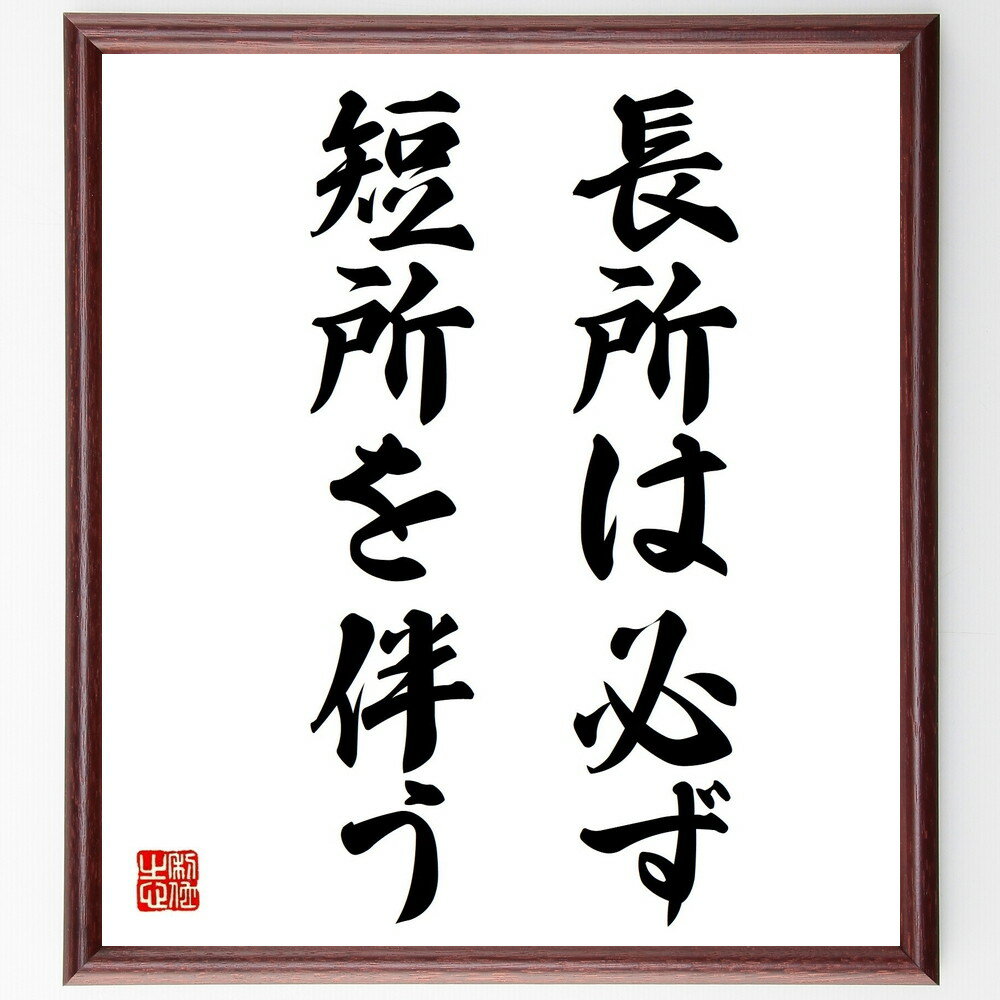 長所は必ず
短所を伴う